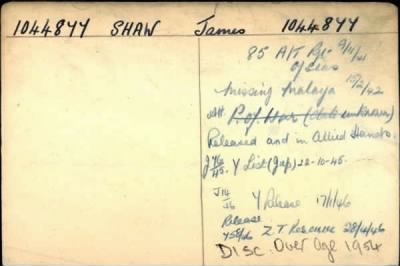 1044844 SHAW James 1044844
85 A/T Rgt 9/11/41
o/seas
Missing Malaya 15/2/42
P. of War (date unknown)
Released and in Allied Hands.
J 46/45. Y List (Jap) 22-10-45.
J 14/46 Y Release 17/1/46
Release
Y58/46 Z T Reserve 28/4/46
DISC. Over Age 1954